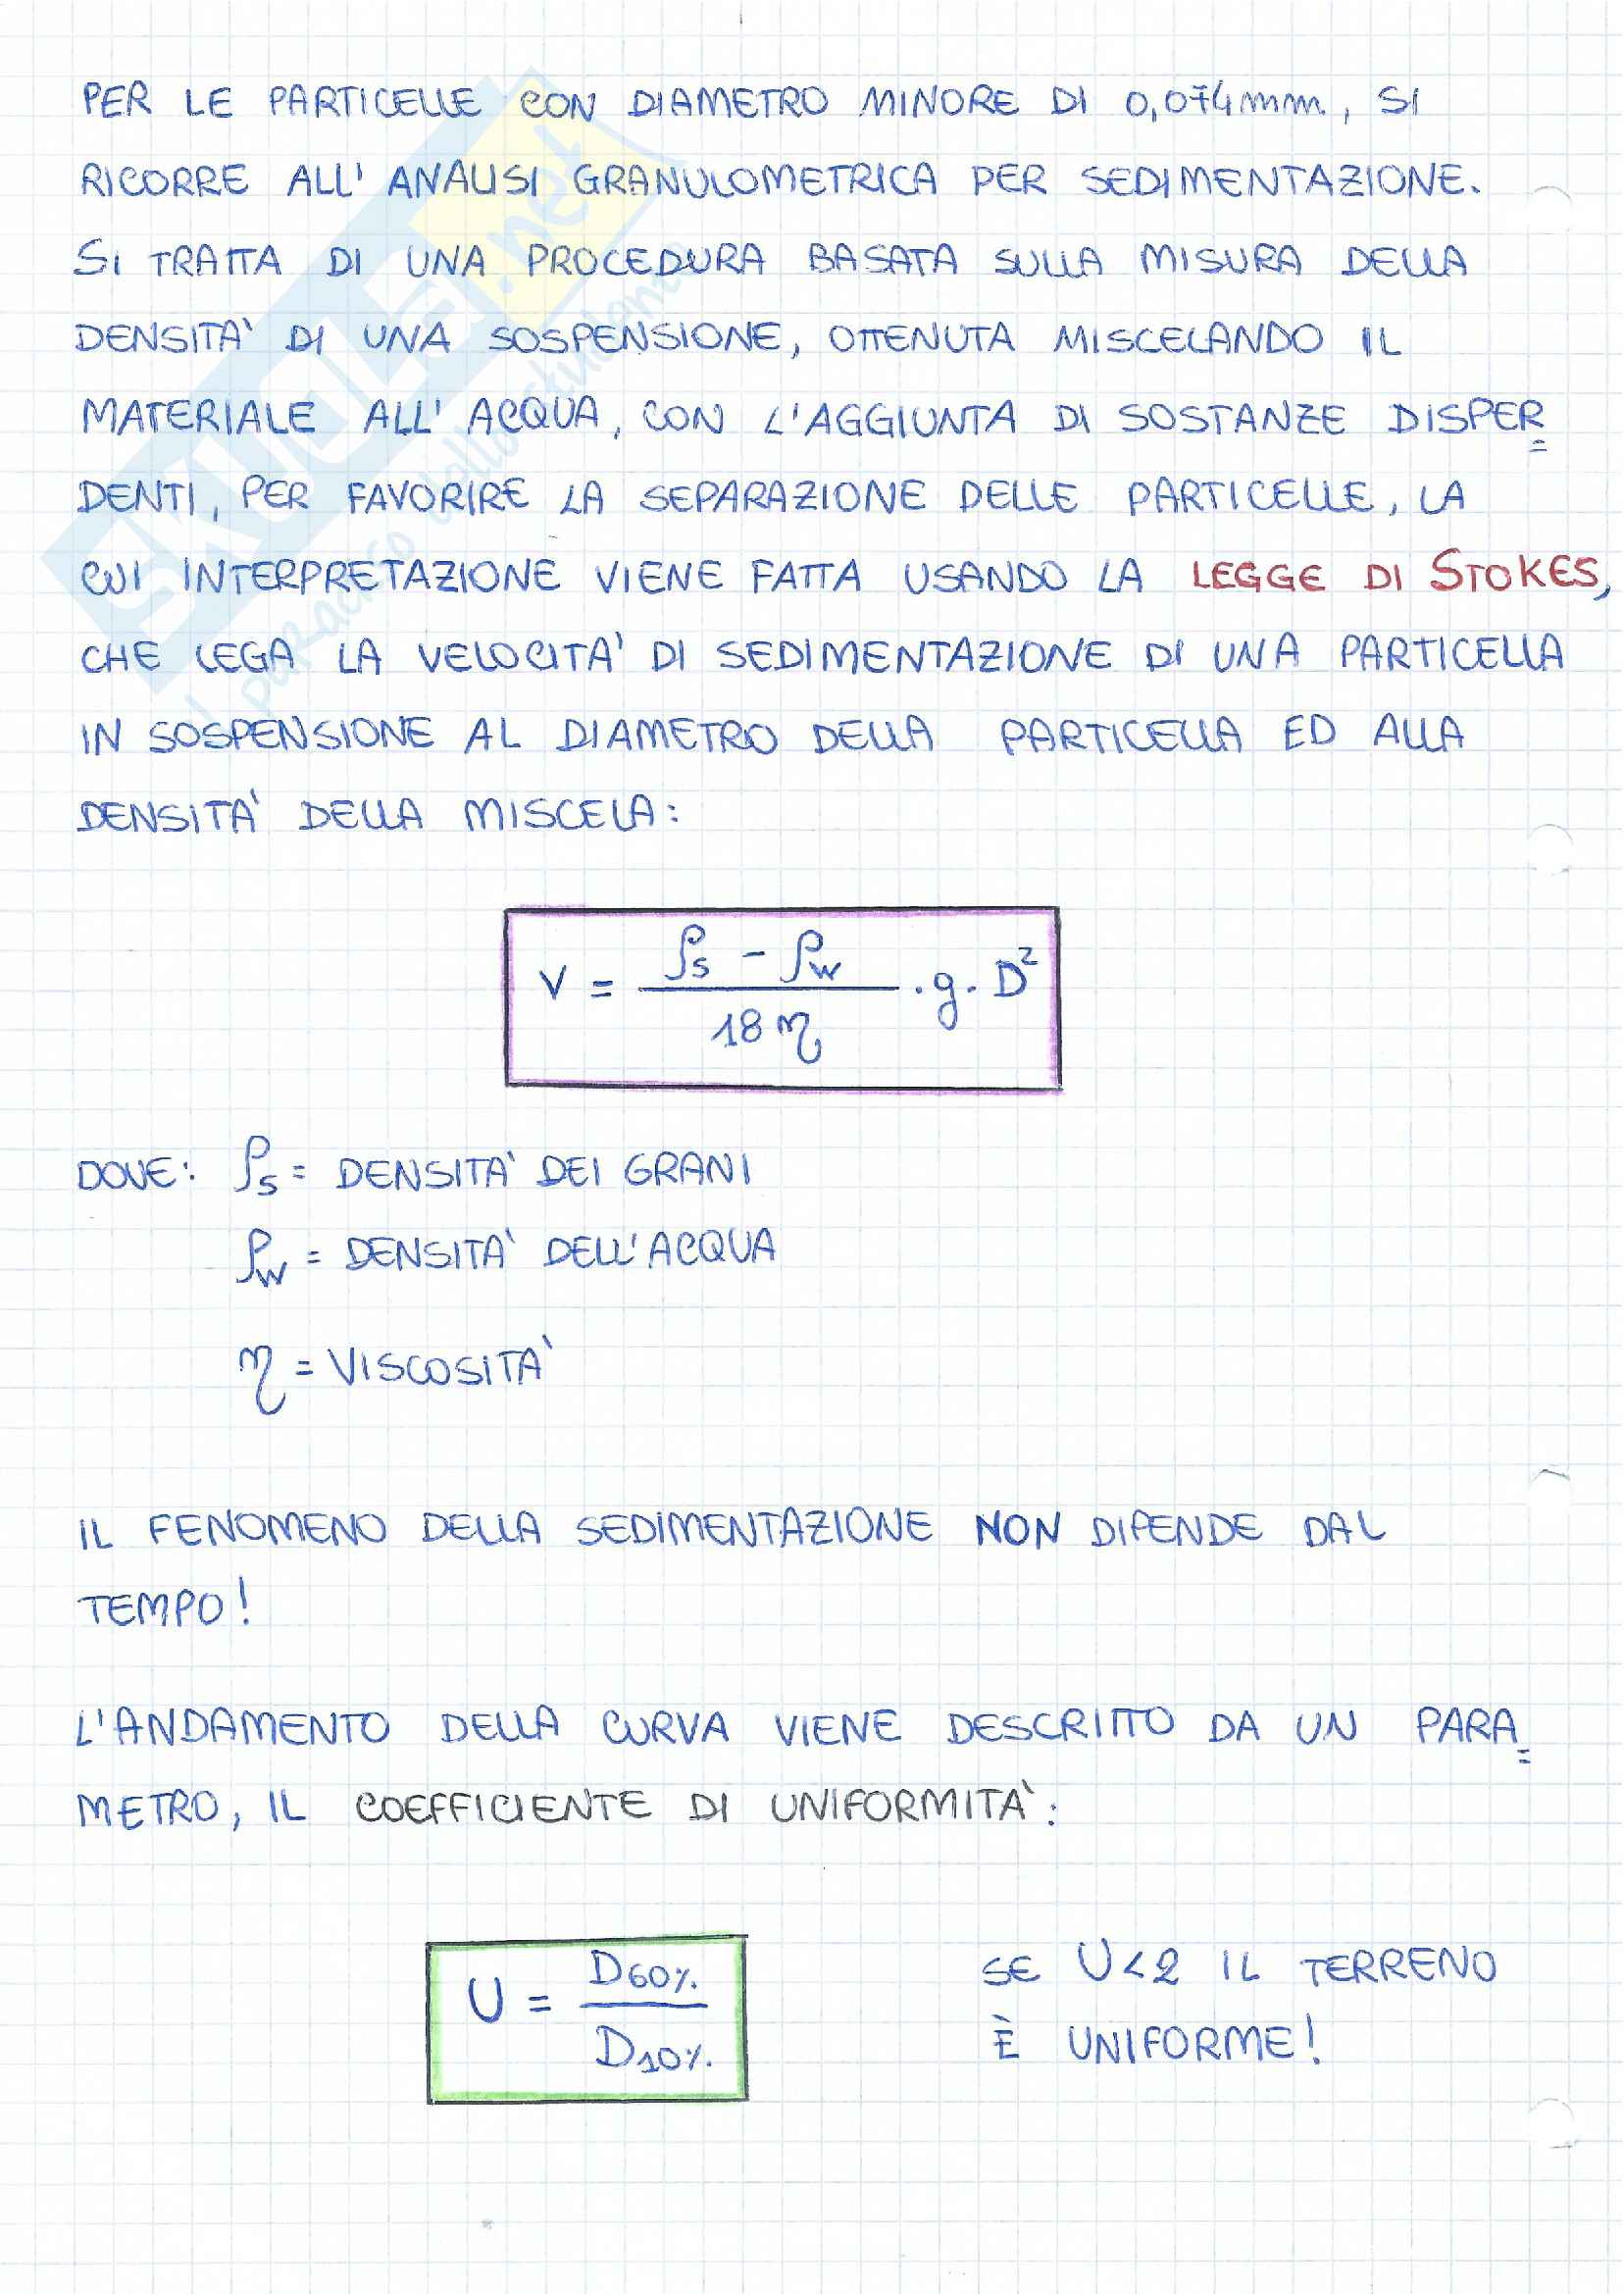 PER LE PARTICELLE CON DIAMETRO MINORE DI 0,074mm, SI
RICORRE ALL'ANALISI GRANULOMETRICA PER SEDIMENTAZIONE.
SI TRATTA DI UNA PROCEDURA BASATA SULLA MISURA DELLA
DENSITA' DI UNA SOSPENSIONE, OTTENUTA MISCELANDO IL
MATERIALE ALL'ACQUA, CON L'AGGIUNTA DI SOSTANZE DISPER=
DENTI, PER FAVORIRE LA SEPARAZIONE DELLE PARTICELLE, LA
CUI INTERPRETAZIONE VIENE FATTA USANDO LA LEGGE DI STOKES,
CHE LEGA LA VELOCITA' DI SEDIMENTAZIONE DI UNA PARTICELLA
IN SOSPENSIONE AL DIAMETRO DELLA PARTICELLA ED ALLA
DENSITA' DELLA MISCELA:
v = (ρs - ρw) / 18η · g · D²
DOVE: ρs = DENSITA' DEI GRANI
ρw = DENSITA' DELL'ACQUA
η = VISCOSITA'
IL FENOMENO DELLA SEDIMENTAZIONE NON DIPENDE DAL
TEMPO!
L'ANDAMENTO DELLA CURVA VIENE DESCRITTO DA UN PARA=
METRO, IL COEFFICIENTE DI UNIFORMITA':
U = D60% / D10%
SE U<2 IL TERRENO
È UNIFORME!
SKUOLA.net
il paradiso dello studente